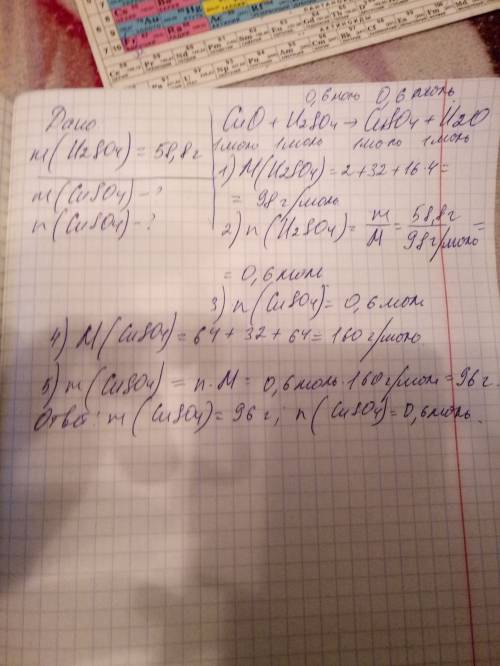 0,6 моль 0,6 моль
Дано
m(H2SO4) = 58,8 г
m(CuSO4) - ?
n(CuSO4) - ?
CuO + H2SO4 → CuSO4 + H2O
1 моль 1 моль 1 моль 1 моль
1) M(H2SO4) = 2 + 32 + 16·4 =
= 98 г/моль
2) n(H2SO4) = m/M = 58,8г/98 г/моль =
= 0,6 моль
3) n(CuSO4) = 0,6 моль
4) M(CuSO4) = 64 + 32 + 64 = 160 г/моль
5) m(CuSO4) = n · M = 0,6 моль · 160 г/моль = 96 г.
Ответ: m(CuSO4) = 96 г; n(CuSO4) = 0,6 моль.